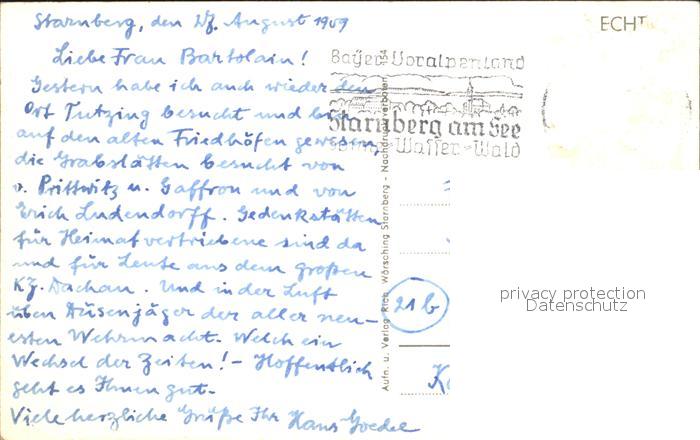 Starnberg, den 27. August 1959
Liebe Frau Bartolain!
Gestern habe ich auch wieder den
Ort Tutzing besucht und bin
auf den alten Friedhöfen gewesen,
die Grabstätten besucht von
v. Prittwitz u. Gaffron und von
Erich Ludendorff. Gedenkstätten
für Heimatvertriebene sind da
und für Leute aus dem großen
KZ. Dachau. Und in der Luft
üben Düsenjäger der aller neu-
esten Wehrmacht. Welch ein
Wechsel der Zeiten! - Hoffentlich
geht es Ihnen gut.
Viele herzliche Grüße Ihr Hans Goedel
Bayer. Voralpenland
Starnberg am See
Wasser-Wald
Aufn. u. Verlag Rich. Wörsching Starnberg - Nachdruck verboten 154
ECHT
21b
privacy protection
Datenschutz